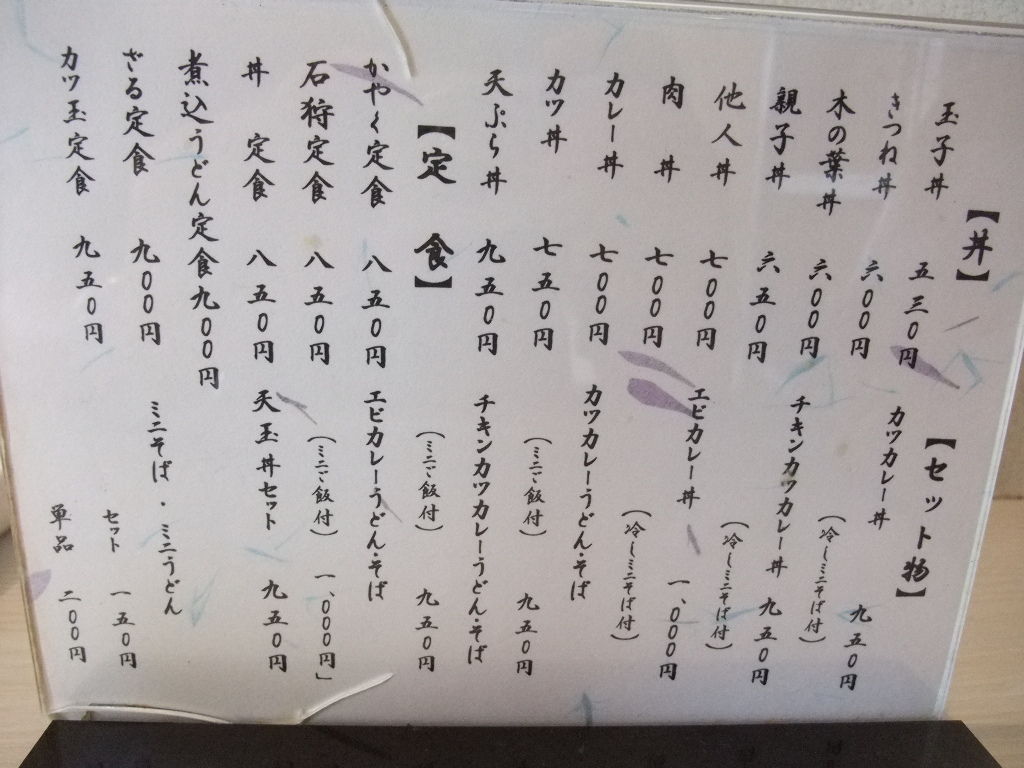 【丼】
玉子丼 五三〇円
きつね丼 六〇〇円
木の葉丼 六〇〇円
親子丼 六五〇円
他人丼 七〇〇円
肉丼 七〇〇円
カレー丼 七〇〇円
カツ丼 七五〇円
天ぷら丼 九五〇円
【定食】
かやく定食 八五〇円
石狩定食 八五〇円
丼定食 八五〇円
煮込うどん定食 九〇〇円
ざる定食 九〇〇円
カツ玉定食 九五〇円
【セット物】
カツカレー丼
(冷しミニそば付) 九五〇円
チキンカツカレー丼 九五〇円
(冷しミニそば付)
エビカレー丼 一、〇〇〇円
(冷しミニそば付)
カツカレーうどん・そば
(ミニご飯付) 九五〇円
チキンカツカレーうどん・そば
(ミニご飯付) 九五〇円
エビカレーうどん・そば
(ミニご飯付) 一、〇〇〇円」
天玉丼セット 九五〇円
ミニそば・ミニうどん
セット 一五〇円
単品 二〇〇円